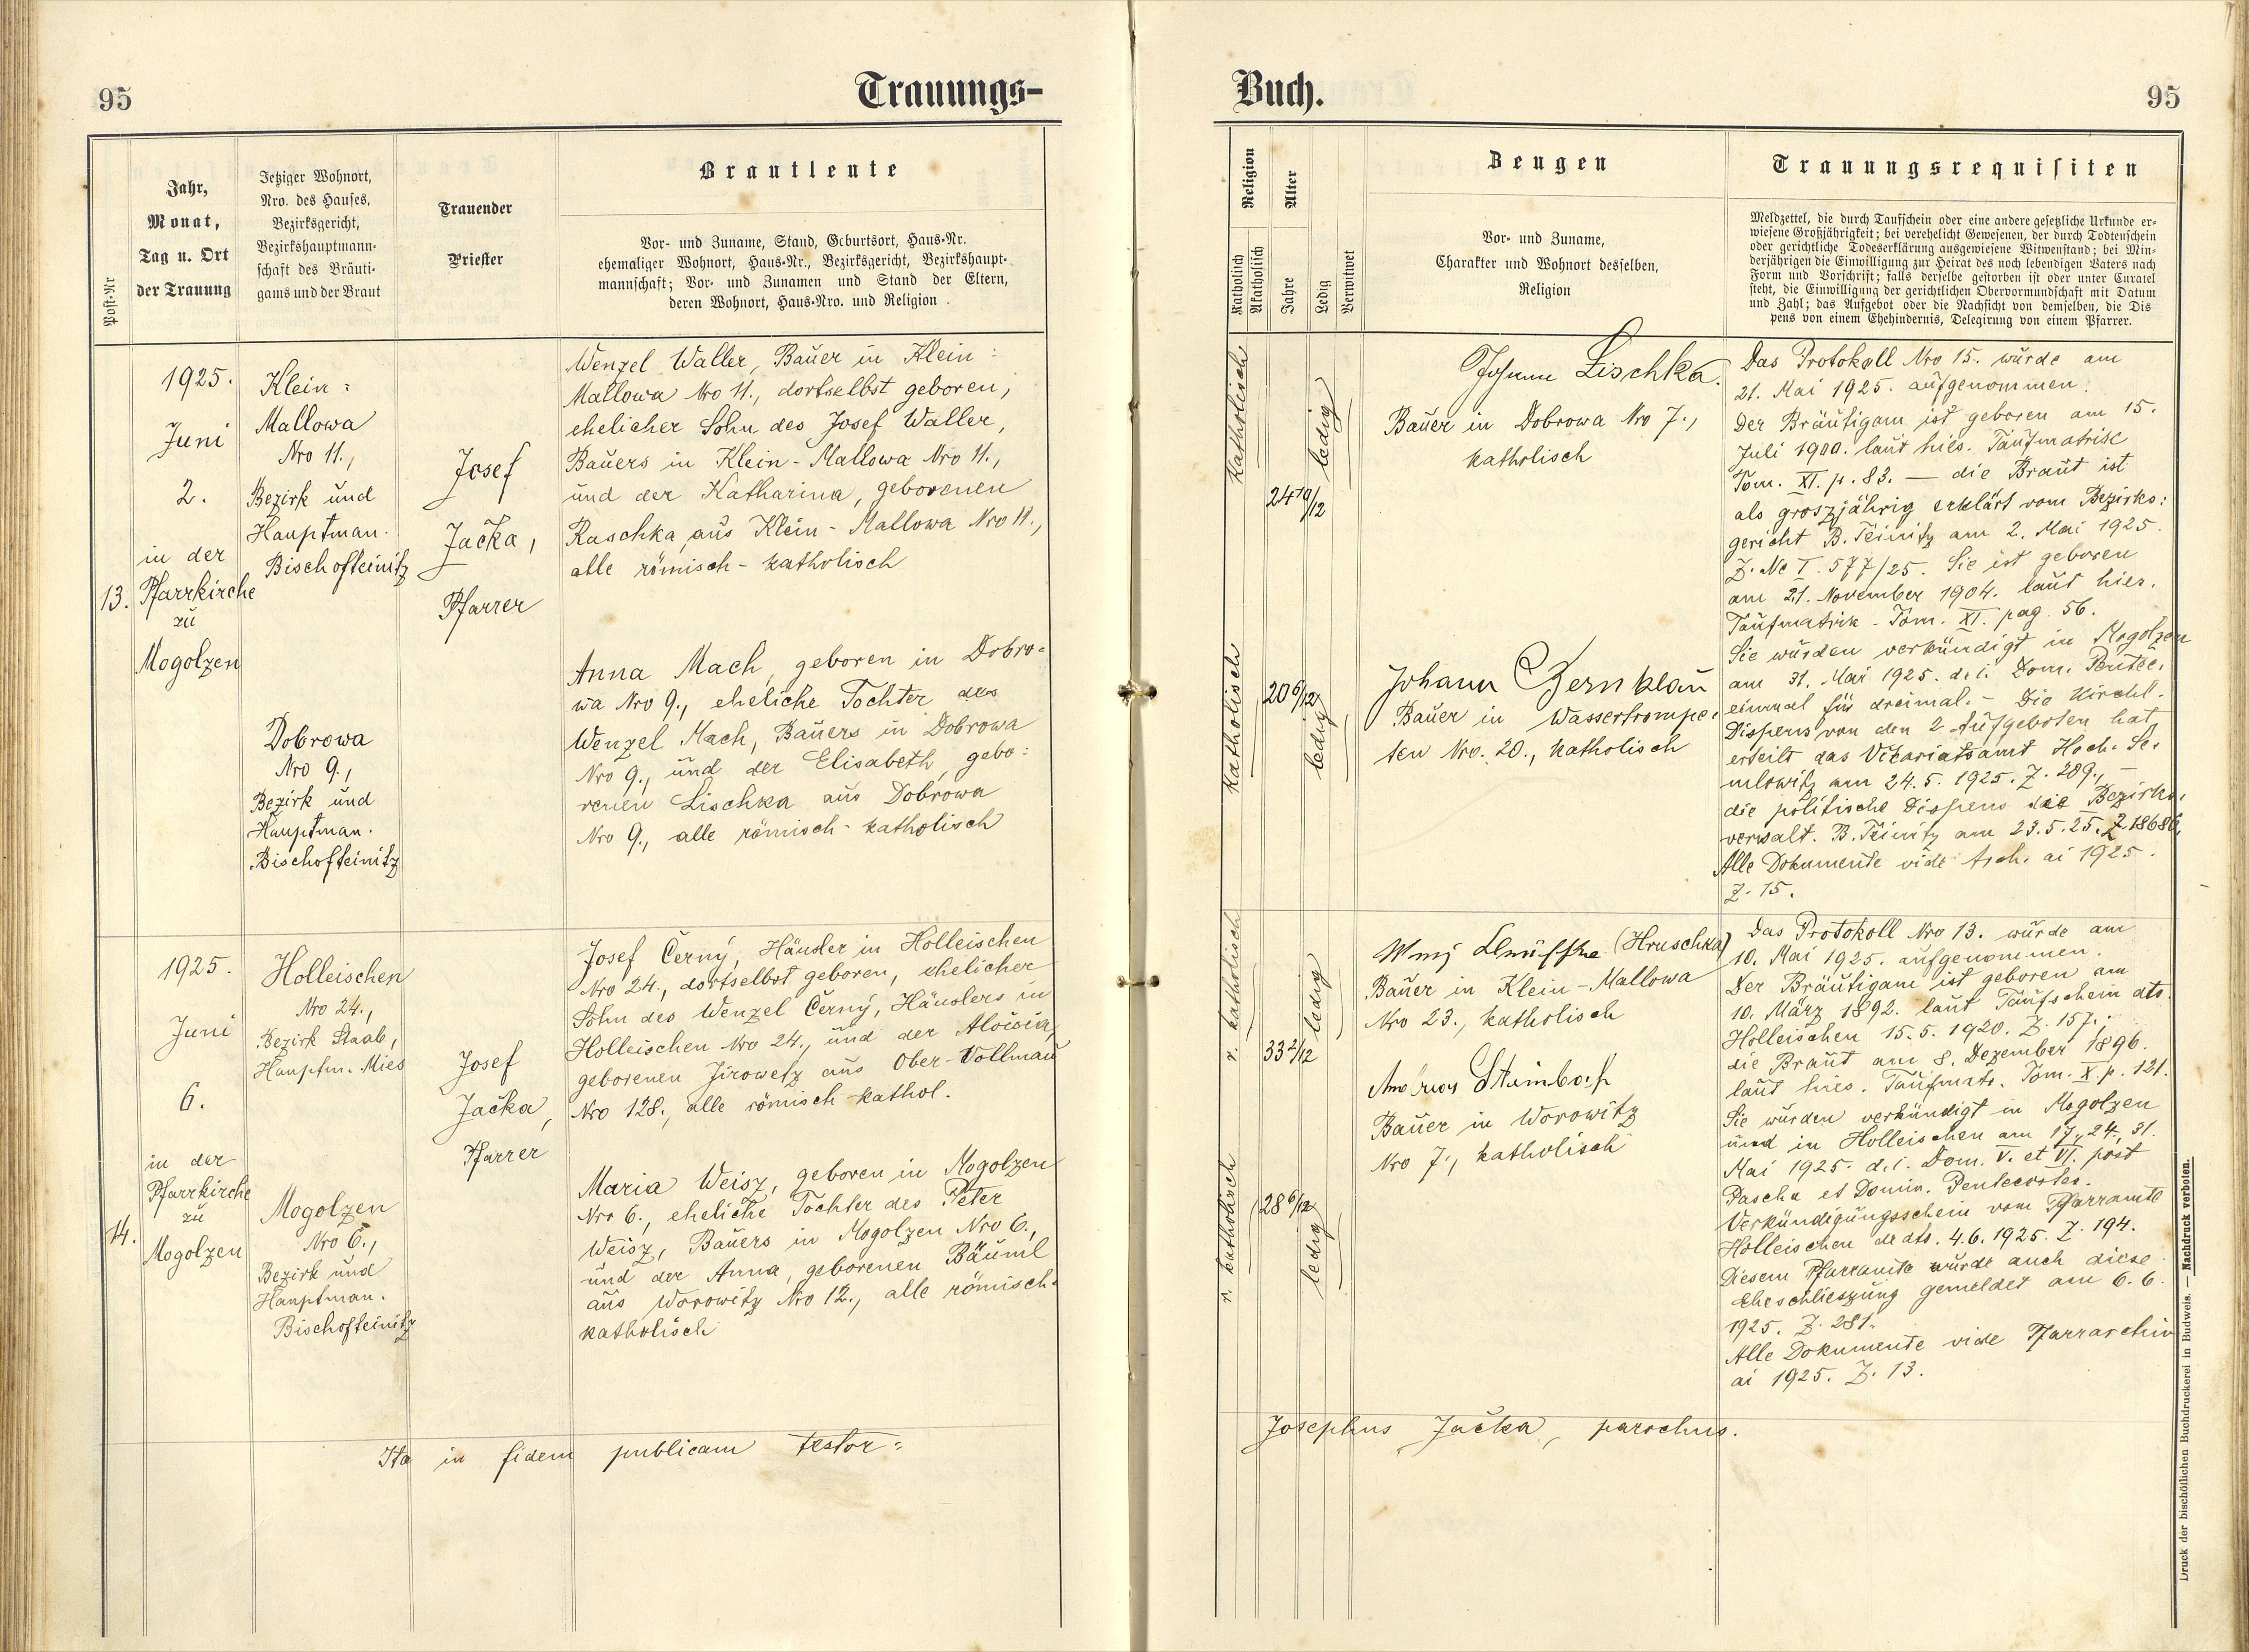 95
Trauungs-
Jahr,
Monat,
Tag u. Ort
der Trauung
Post-Nr
Jetziger Wohnort,
Nro. des Hauses,
Bezirksgericht,
Bezirkshauptmann-
schaft des Bräuti-
gams und der Braut
Trauender
Priester
Brautleute
Vor- und Zuname, Stand, Geburtsort, Haus-Nr.
ehemaliger Wohnort, Haus-Nr., Bezirksgericht, Bezirkshaupt-
mannschaft; Vor- und Zunamen und Stand der Eltern,
deren Wohnort, Haus-Nro. und Religion.
13.
1925.
Juni
2.
in der
Pfarrkirche
zu
Mogolzen
Klein =
Mallowa
Nro 11.,
Bezirk und
Hauptman.
Bischofteinitz
Dobrowa
Nro 9.,
Bezirk und
Hauptman.
Bischofteinitz
Josef
Jačka,
Pfarrer
Wenzel Waller, Bauer in Klein =
Mallowa Nro 11., dortselbst geboren,
ehelicher Sohn des Josef Waller,
Bauers in Klein-Mallowa Nro 11.,
und der Katharina, geborenen
Raschka, aus Klein-Mallowa Nro 11.,
alle römisch-katholisch
Anna Mach, geboren in Dobro=
wa Nro 9., eheliche Tochter des
Wenzel Mach, Bauers in Dobrowa
Nro 9., und der Elisabeth, gebo=
renen Lischka aus Dobrowa
Nro 9., alle römisch-katholisch
14.
1925.
Juni
6.
in der
Pfarrkirche
zu
Mogolzen
Holleischen
Nro 24.,
Bezirk Staab,
Hauptm. Mies
Mogolzen
Nro 6.,
Bezirk und
Hauptman.
Bischofteinitz
Josef
Jačka,
Pfarrer
Josef Černý, Häusler in Holleischen
Nro 24., dortselbst geboren, ehelicher
Sohn des Wenzel Černý, Häuslers in
Holleischen Nro 24., und der Aloisia,
geborenen Jirowetz aus Ober-Vollmau
Nro 128., alle römisch-kathol.
Maria Weisz, geboren in Mogolzen
Nro 6., eheliche Tochter des Peter
Weisz, Bauers in Mogolzen Nro 6.,
und der Anna, geborenen Bäuml
aus Worowitz Nro 12., alle römisch-
katholisch
Ita in fidem publicam testor:
Buch.
95
Religion
Katholisch
Akatholisch
Alter
Jahre
Ledig
Verwitwet
Zeugen
Vor- und Zuname,
Charakter und Wohnort desselben,
Religion
Trauungsrequisiten
Meldzettel, die durch Taufschein oder eine andere gesetzliche Urkunde er-
wiesene Großjährigkeit; bei verehelicht Gewesenen, der durch Todtenschein
oder gerichtliche Todeserklärung ausgewiesene Witwenstand; bei Min-
derjährigen die Einwilligung zur Heirat des noch lebendigen Vaters nach
Form und Vorschrift; falls derselbe gestorben ist oder unter Curatel
steht, die Einwilligung der gerichtlichen Obervormundschaft mit Datum
und Zahl; das Aufgebot oder die Nachsicht von demselben, die Dis
pens von einem Ehehindernis, Delegirung von einem Pfarrer.
katholisch
24 10/12
ledig
katholisch
20 6/12
ledig
Johann Lischka.
Bauer in Dobrowa Nro 7.,
katholisch
Johann Bernklau
Bauer in Wassertrompe=
ten Nro. 20., katholisch
Das Protokoll Nro 15. wurde am
21. Mai 1925. aufgenommen.
Der Bräutigam ist geboren am 15.
Juli 1900. laut hies. Taufmatrik
Tom. XI. p. 83. — die Braut ist
als groszjährig erklärt vom Bezirks=
gericht B. Teinitz am 2. Mai 1925.
Z. Nc I. 577/25. Sie ist geboren
am 21. November 1904. laut hies.
Taufmatrik - Tom. XI. pag. 56.
Sie wurden verkündigt in Mogolzen
am 31. Mai 1925. d. i. Dom. Pentec.
einmal für dreimal. - Die kirchl.
Dispens von den 2 Aufgeboten hat
erteilt das Vikariatsamt Hoch. Se=
mlowitz am 24.5.1925. Z. 209., —
die politische Dispens die Bezirks=
verwalt. B. Teinitz am 23.5.25. Z 18686.
Alle Dokumente vide Arch. ai 1925.
Z. 15.
r. katholisch
33 2/12
ledig
r. katholisch
28 6/12
ledig
(Hruschka)
Bauer in Klein-Mallowa
Nro 23., katholisch
Andreas Steinbach
Bauer in Worowitz
Nro 7., katholisch
Das Protokoll Nro 13. wurde am
10. Mai 1925. aufgenommen.
Der Bräutigam ist geboren am
10. März 1892. laut Taufschein dto.
Holleischen 15.5.1920. Z. 157.;
die Braut am 8. Dezember 1896.
laut hies. Taufmatr. Tom. X. p. 121.
Sie wurden verkündigt in Mogolzen
und in Holleischen am 17., 24., 31.
Mai 1925. d. i. Dom. V. et VI. post
Pascha et Domin. Pentecostes.
Verkündigungsschein vom Pfarramte
Holleischen de dto. 4.6.1925. Z. 194.
Diesem Pfarramte wurde auch diese
Eheschlieszung gemeldet am 6.6.
1925. Z. 281.
Alle Dokumente vide Pfarrarchiv
ai 1925. Z. 13.
Josephus Jačka, parochus.
Druck der bischöflichen Buchdruckerei in Budweis. — Nachdruck verboten.